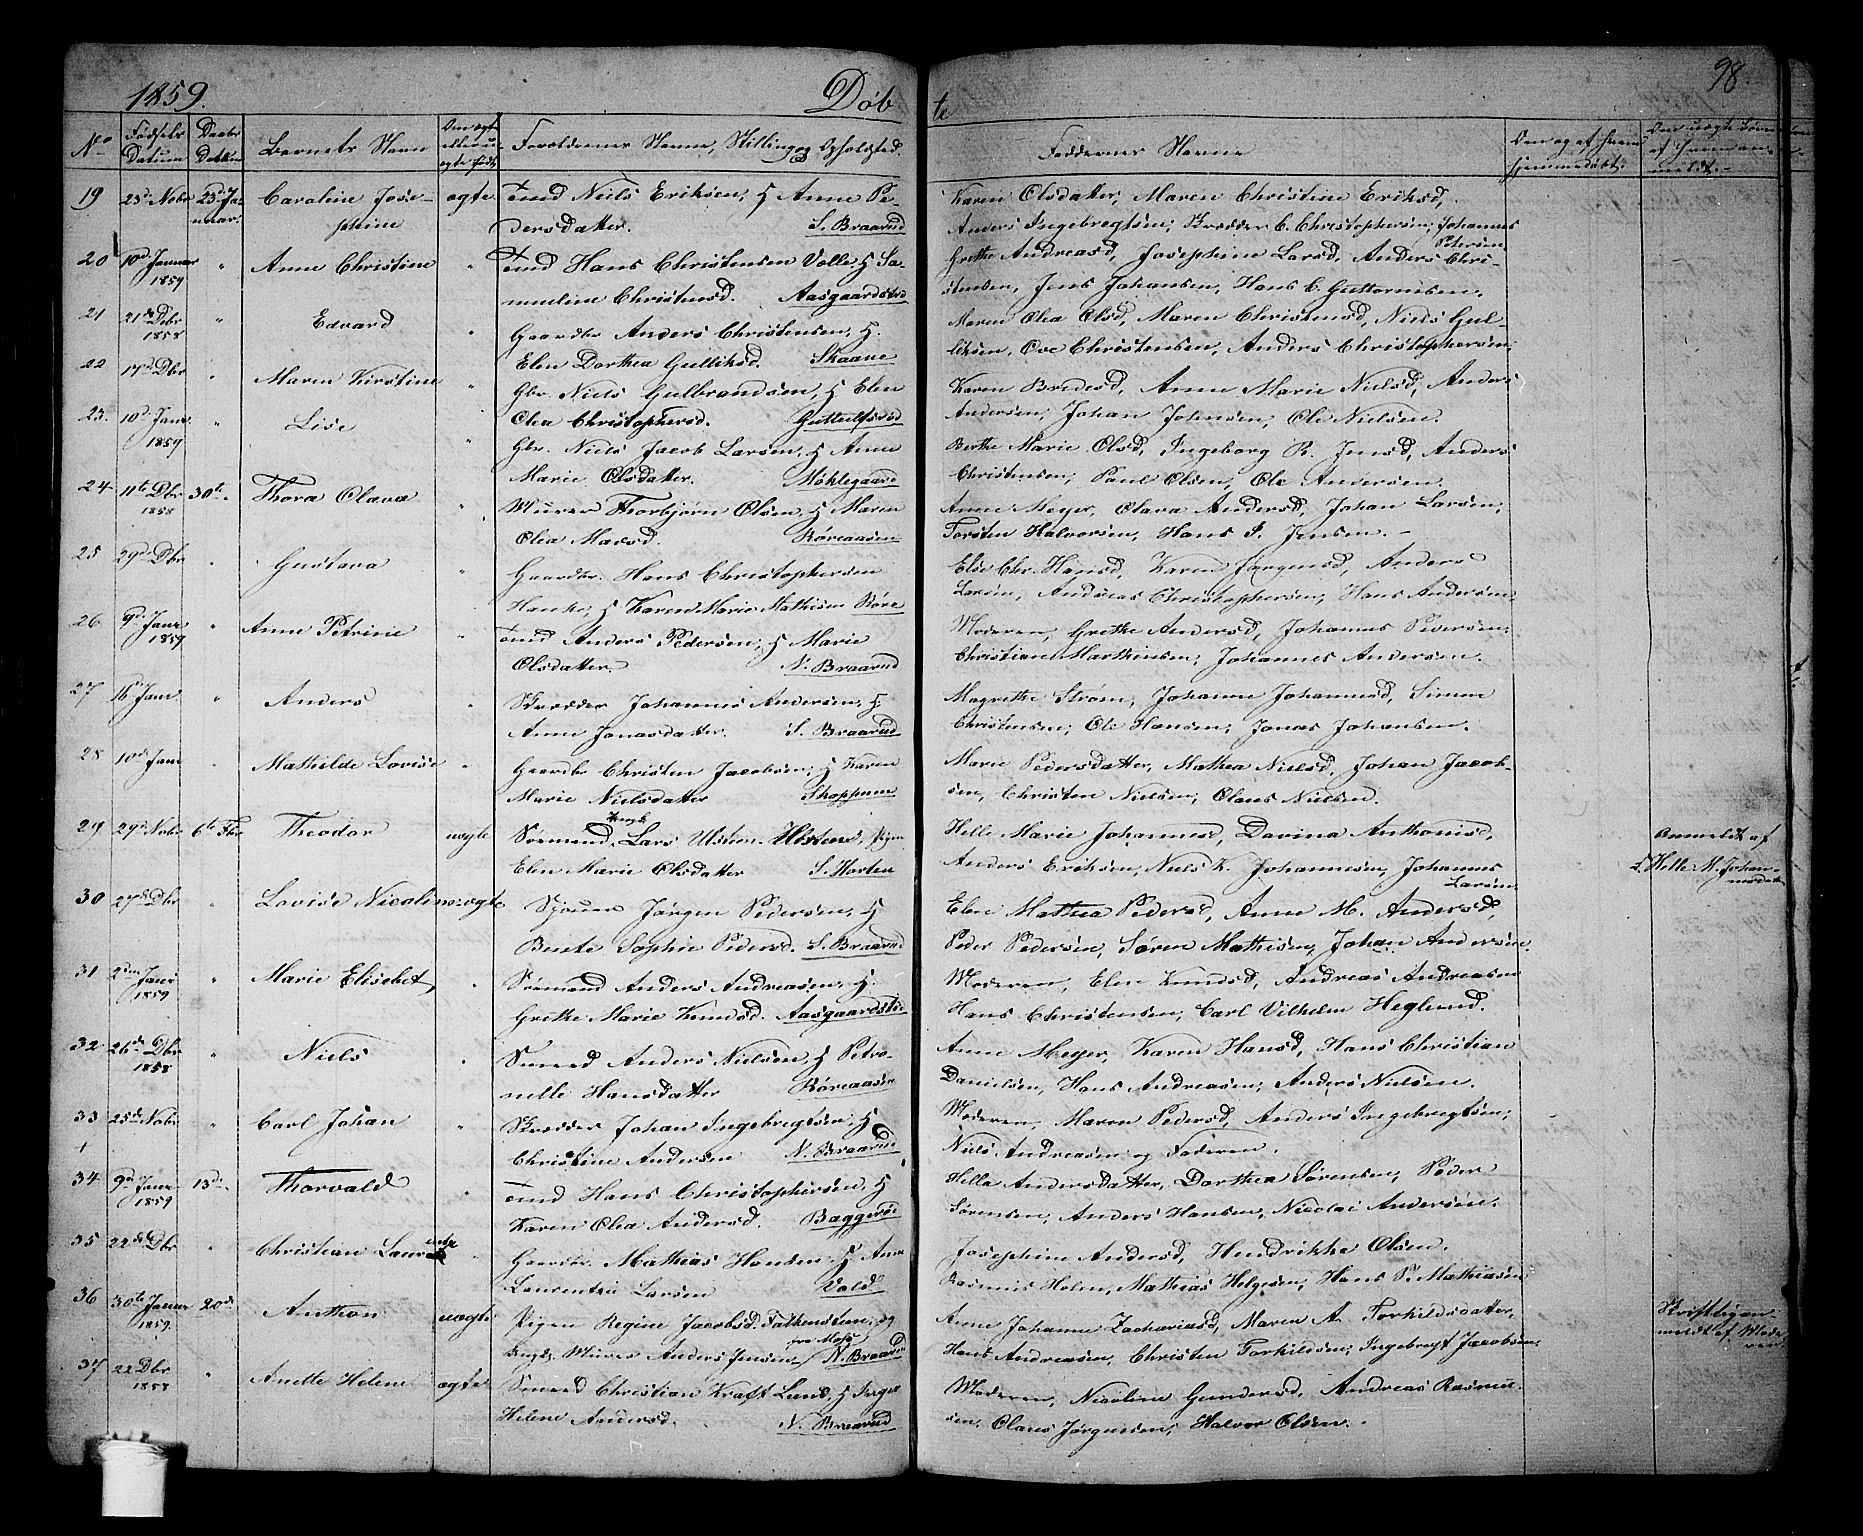 1859.
Döb
te
98.
No
Fødsels Datum
Daabs Datum
Barnets Navn
Om ægte eller uægte født
Forældrenes Navne, Stilling og Opholdsted
Faddernes Navne
19 23de Novbr 23de Januar. Caroline Josephine ægte Tmd Niels Eriksen, H Anne Pedersdatter. S. Braarud
Karen Olsdatter, Maren Christine Eriksd,
Anders Ingebregtsen, Skrædder C. Christophersen, Johannes Petersen
20 10de Januar 1859 " Anne Christine " Tmd Hans Christensen Volle, H Samueline Christensd. Aasgaardstrd
Grethe Andreasd, Josephine Larsd, Anders Christensen, Jens Johansen, Hans C. Guttormsen.
21 21de Dcbr 1858 " Edvard " Gaardbr Anders Christensen, H. Elen Dorthea Gulliksd. Skaane
Maren Olea Olsd, Maren Christensd, Niels Gulliksen, Ove Christensen, Anders Christophersen,
22 17de Dbr " Maren Kirstine " Gbr. Niels Gulbrandsen, H Elen Olea Christophersd.
Karen Bredesd, Anne Marie Nielsd, Anders
Andersen, Johan Johnsen, Ole Nielsen.
23. 10de Janr 1859 " Lise " Gbr. Niels Jacob Larsen, H Anne Marie Olsdatter. Møhlegaard
Berthe Marie Olsd, Ingeborg R. Jensd, Anders
Christensen, Paul Olsen, Ole Andersen.
24 11te Dbr 1858 30te Thora Olava " Murer Thorbjørn Olsen, H Maren Olea Madsd. Røreaasen
Anne Meyer, Olava Andersd, Johan Larsen,
Torsten Halvorsen, Hans J. Jensen. -
25 29de Dbr " Gustava " Gaardbr. Hans Christophersen Hanke, H Karen Marie Mathisen Røre
Else Chr. Hansd, Karen Jørgensd, Anders
Larsen, Andreas Christophersen, Hans Andersen
26 9de Janr 1859 " Anne Petrine " Tmd Anders Pedersen, H Marie Olsdatter N. Braarud
Moderen, Grethe Andersd, Johannes Pedersen,
Christian Marthinsen, Johannes Andersen.
27 16 Janr " Anders " Skrædder Johannes Andersen, H. Anne Jonasdatter. S. Braarud
Magrethe Strøm, Johanne Johannesd, Simen
Christensen, Ole Hansen, Jonas Johansen.
28 10de Janr " Mathilde Lovise " Gaardbr Christen Jacobsen, H Karen Marie Nielsdatter Skoppum
Marie Pedersdatter, Mathea Nielsd, Johan Jacobsen, Christen Nielsen, Olaus Nielsen.
29 29de Novbr 6te Fbr Theodor uægte Sømand, Ungk. Lars Horten, Pigen Elen Marie Olsdatter S. Horten
Helle Marie Johannesd, Davina Anthonisd,
Anders Eriksen, Niels K. Johannesen, Johannes Larsen
Anmeldt af Helle M. Johannesdatter
30 27de Dbr " Lovise Nicoline ægte Sjouer Jørgen Pedersen, H Bente Sophie Pedersd. S. Braarud
Elen Mathea Pedersd, Anne M. Andersd,
Peder Pedersen, Søren Mathisen, Johan Andersen.
31 2den Janr 1859 " Marie Elisebet " Sømand Anders Andreasen, H. Grethe Marie Knudsd. Aasgaardstr
Moderen, Elen Knudsd, Andreas Andreasen
Hans Christensen, Carl Vilhelm Heglund.
32 26de Dbr 1858 " Niels " Smed Anders Nielsen, H Petronelle Hansdatter Røreaasen
Anne Meyer, Karen Hansd, Hans Christian
Danielsen, Hans Andreasen, Anders Nielsen.
33 25de Novbr " Carl Johan " Skrædder Johan Ingebregtsen, H. Christine Andersen N. Braarud
+
Moderen, Maren Pedersd, Anders Ingebregtsen,
Niels Andreasen og Faderen.
34 9de Janr 1859 13de Thorvald " Tmd Hans Christophersen, H Karen Olea Andersd. Baggerød
Helle Andersdatter, Dorthea Sørensen, Peder
Sørensen, Anders Hansen, Nicolai Andersen.
35 22de Dbr " Christian Laurentz " Gaardbr. Mathias Hansen, H Anne Laurentze Larsen Vold
Josephine Andersd, Hendrikke Olsen.
Rasmus Holm, Mathias Helgesen, Hans P. Mathiasen
36 30te Januar 1859. 20de Anthon uægte Pigen Regine Jacobsd. Falkensteen, og Ungk. Murer Anders Jensen, fra Moss N. Braarud
Anne Johanne Zachariasd, Maren A. Torkildsdatter,
Hans Andreasen, Christen Torkildsen, Ingebregt Jacobsen
Skriftlig anmeldt af Moderen
37 22 Dbr 1858 " Anette Helene ægte Smed Christian Kraft Lund, H Inger Helene Andersd. N. Braarud
Moderen, Nicoline Gundersd, Andreas Rasmussen, Olaves Jørgensen, Halvor Olsen. -